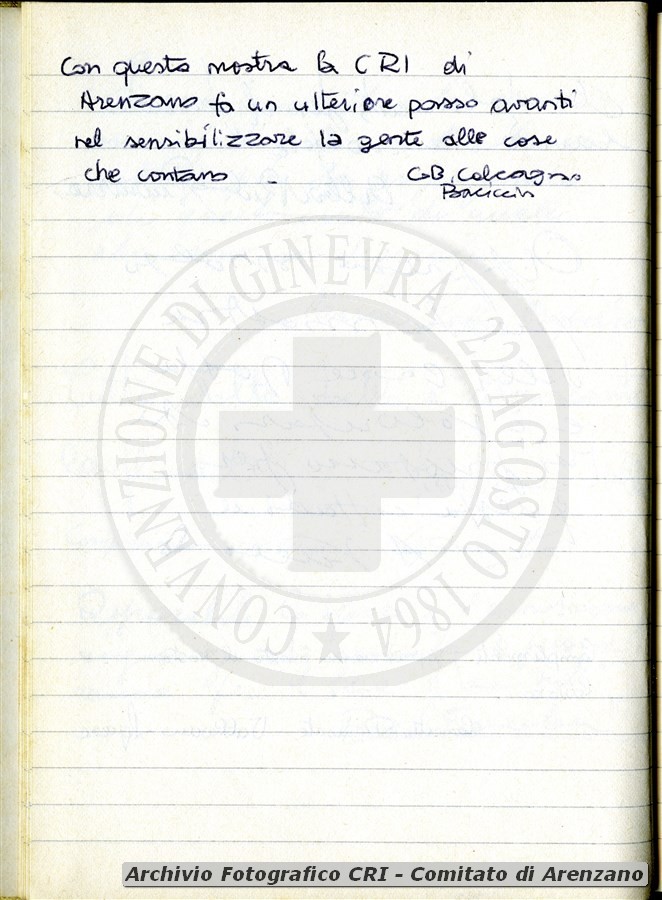 Con questa mostra la CRI di
Arenzano fa un ulteriore passo avanti
nel sensibilizzare la gente alle cose
che contano -
GB. Calcagno
Baciccin
CONVENZIONE DI GINEVRA 22 AGOSTO 1864
Archivio Fotografico CRI - Comitato di Arenzano